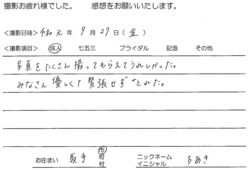 撮影お疲れ様でした。 感想をお願いいたします。
<撮影日時> 令和 元 年 9 月 27 日 ( 金 )
<撮影項目> 成人 七五三 ブライダル 記念 その他
写真をたくさん撮ってもらえてうれしかった。
みなさん優しくて緊張せずとれた。
お住まい 取手 市 町 村 ニックネーム イニシャル ちあき